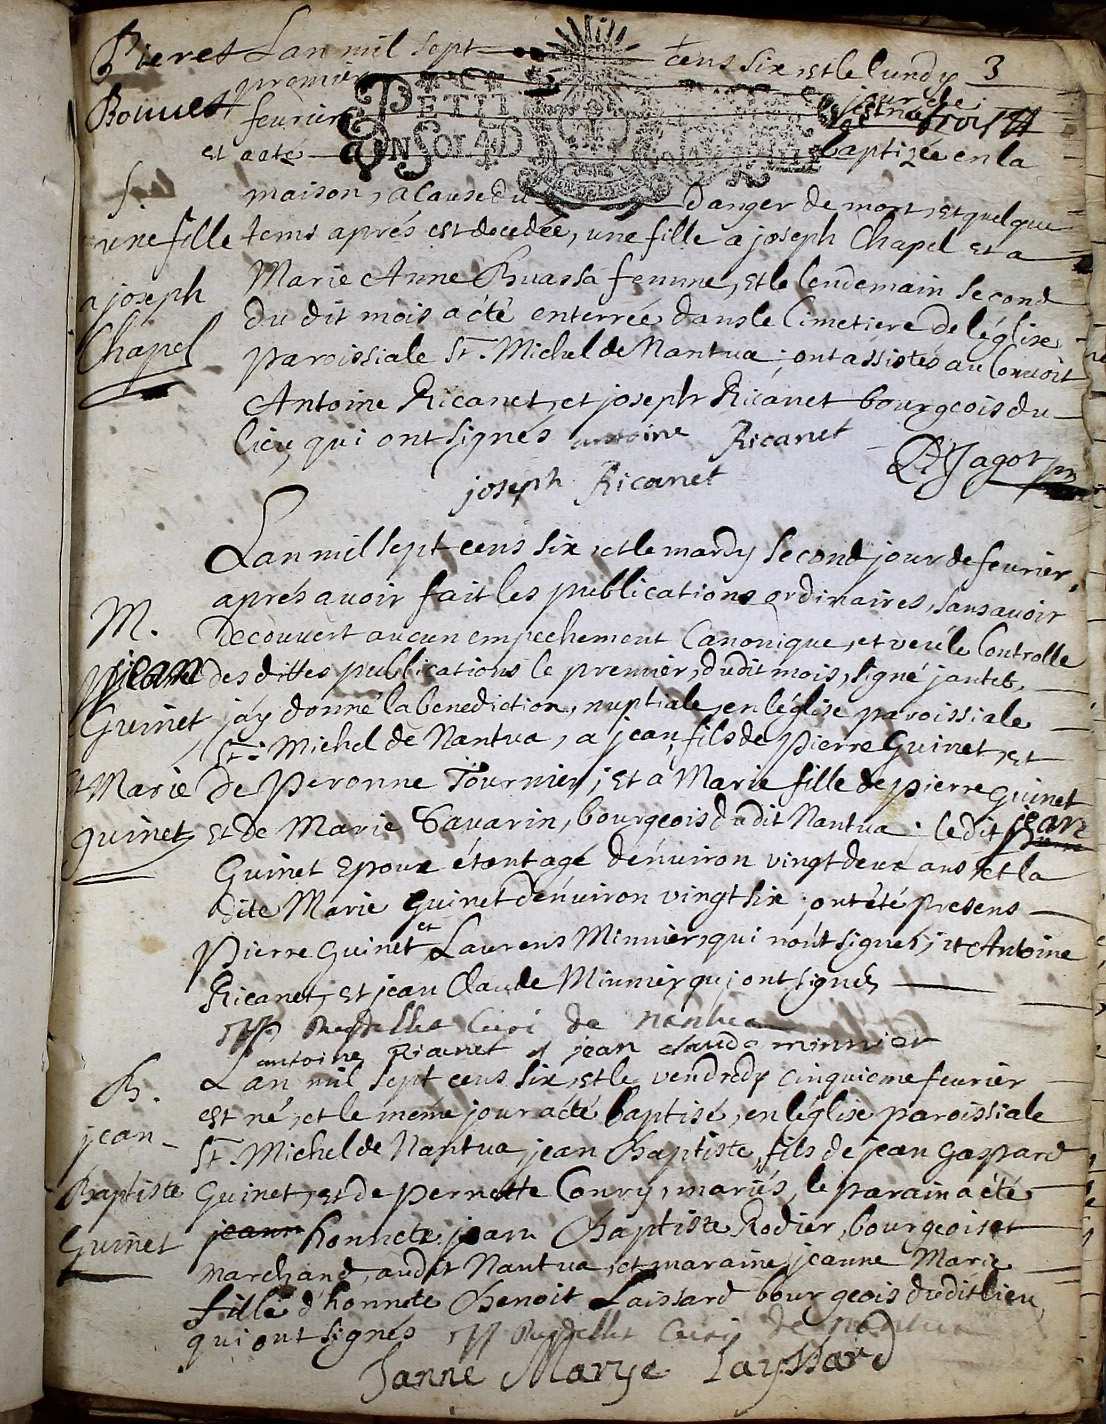 Lan mil sept cens six, et le lundy 3
premier jour de
fevrier
PETIT
ON SOL 4D
est néé baptizée en la
maison, a cause du danger de mort, et quelque
tems aprés est decedée, une fille a joseph Chapel et a
Marie Anne Buassa femme, et le lendemain second
du dit mois a été enterrée dans le Cimetiere de léglise
paroissiale St. Michel de Nantua; ont assistés au Convoit
Antoine Ricanet, et joseph Ricanet bourgeois du
lieu, qui ont signés antoine Ricanet
joseph Ricanet
Jagot
une fille
a joseph
Chapel
Lan mil sept cens six, et le mardy second jour de fevrier,
aprés avoir fait les publications ordinaires, sans avoir
decouvert aucun empechement Canonique, et veu le Controlle
des dittes publications le premier, dudit mois, signé
jay donné la benediction, nuptiale, en léglise paroissiale
St. Michel de Nantua, a jean, fils de pierre Guinet, et
de Peronne Tournier; et a Marie fille de pierre Guinet
et de Marie Savarin, bourgeois dudit Nantua: ledit jean
Guinet Epoux étant agé dénviron vingt deux ans, et la
dite Marie Guinet dénviron vingt six; ont été presens
Pierre Guinet, et Laurens Minnier, qui nónt signés; et Antoine
Ricanet, et jean Claude Minnier, qui ont signés
Curé de nantua
antoine Ricanet jean claude minnier
M.
jean
Guinet
et Marie
guinet
Lan mil sept cens six, et le vendredy cinquieme fevrier
est né, et le méme jour a été baptisé, en léglise paroissiale
St. Michel de Nantua, jean Baptiste, fils de jean Gaspard
Guinet, et de pernette Convy, mariés, le parain a été
jeann honnete jean Baptiste Rodier, bourgeois et
marchand, audit Nantua, et maraine jeanne Marie
fille d'honnete Benoit Laissard bourgeois dudit lieu,
qui ont signés Curé de nantua
Janne Marye Layssard
B.
jean
Baptiste
Guinet